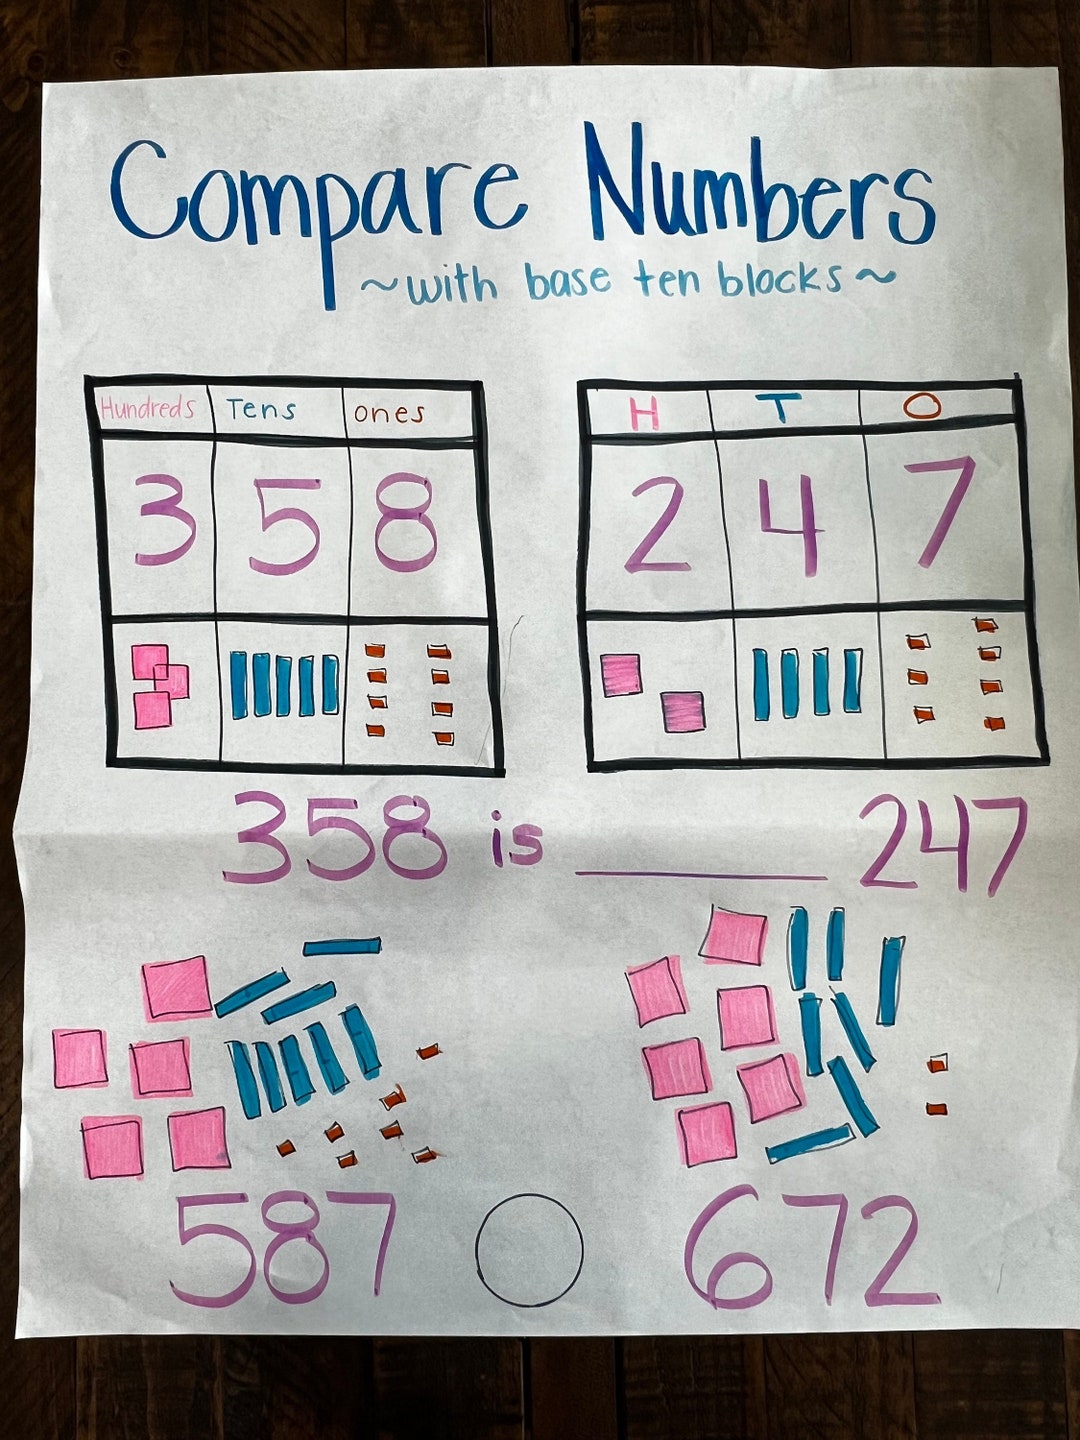 Compare Numbers
~with base ten blocks~
Hundreds Tens ones
3 5 8
H T O
2 4 7
358 is ________ 247
587 672